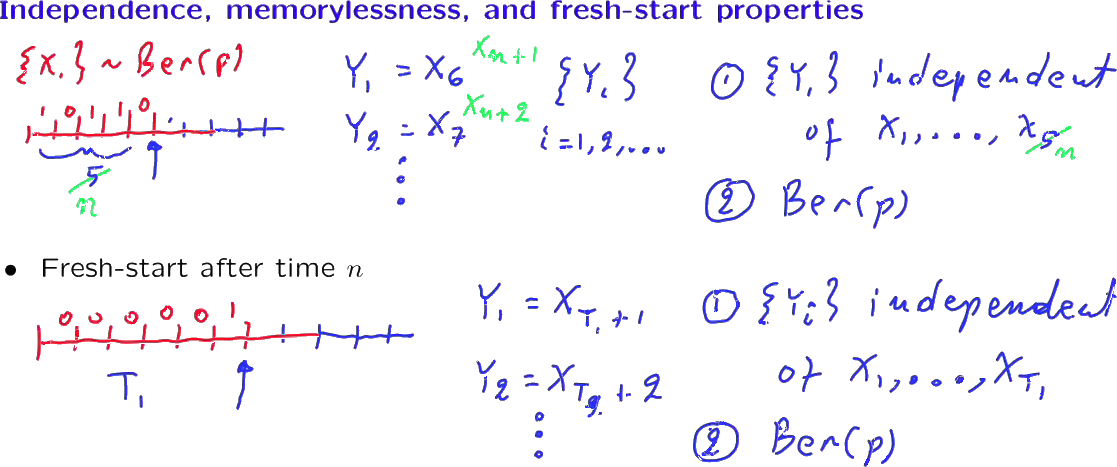 Independence, memorylessness, and fresh-start properties
{X.} ~ Ber(p)
1 0 1 1 0
5
n
Y₁ = X₆ Xₙ₊₁
Y₂ = X₇ Xₙ₊₂
{Yᵢ}
i = 1, 2, ...
① {Yᵢ} independent
of X₁, ..., X₅ n
② Ber(p)
• Fresh-start after time n
0 0 0 0 0 1
T₁
Y₁ = X_{T₁ + 1}
Y₂ = X_{T₂ + 2}
① {Yᵢ} independent
of X₁, ..., X_{T₁}
② Ber(p)